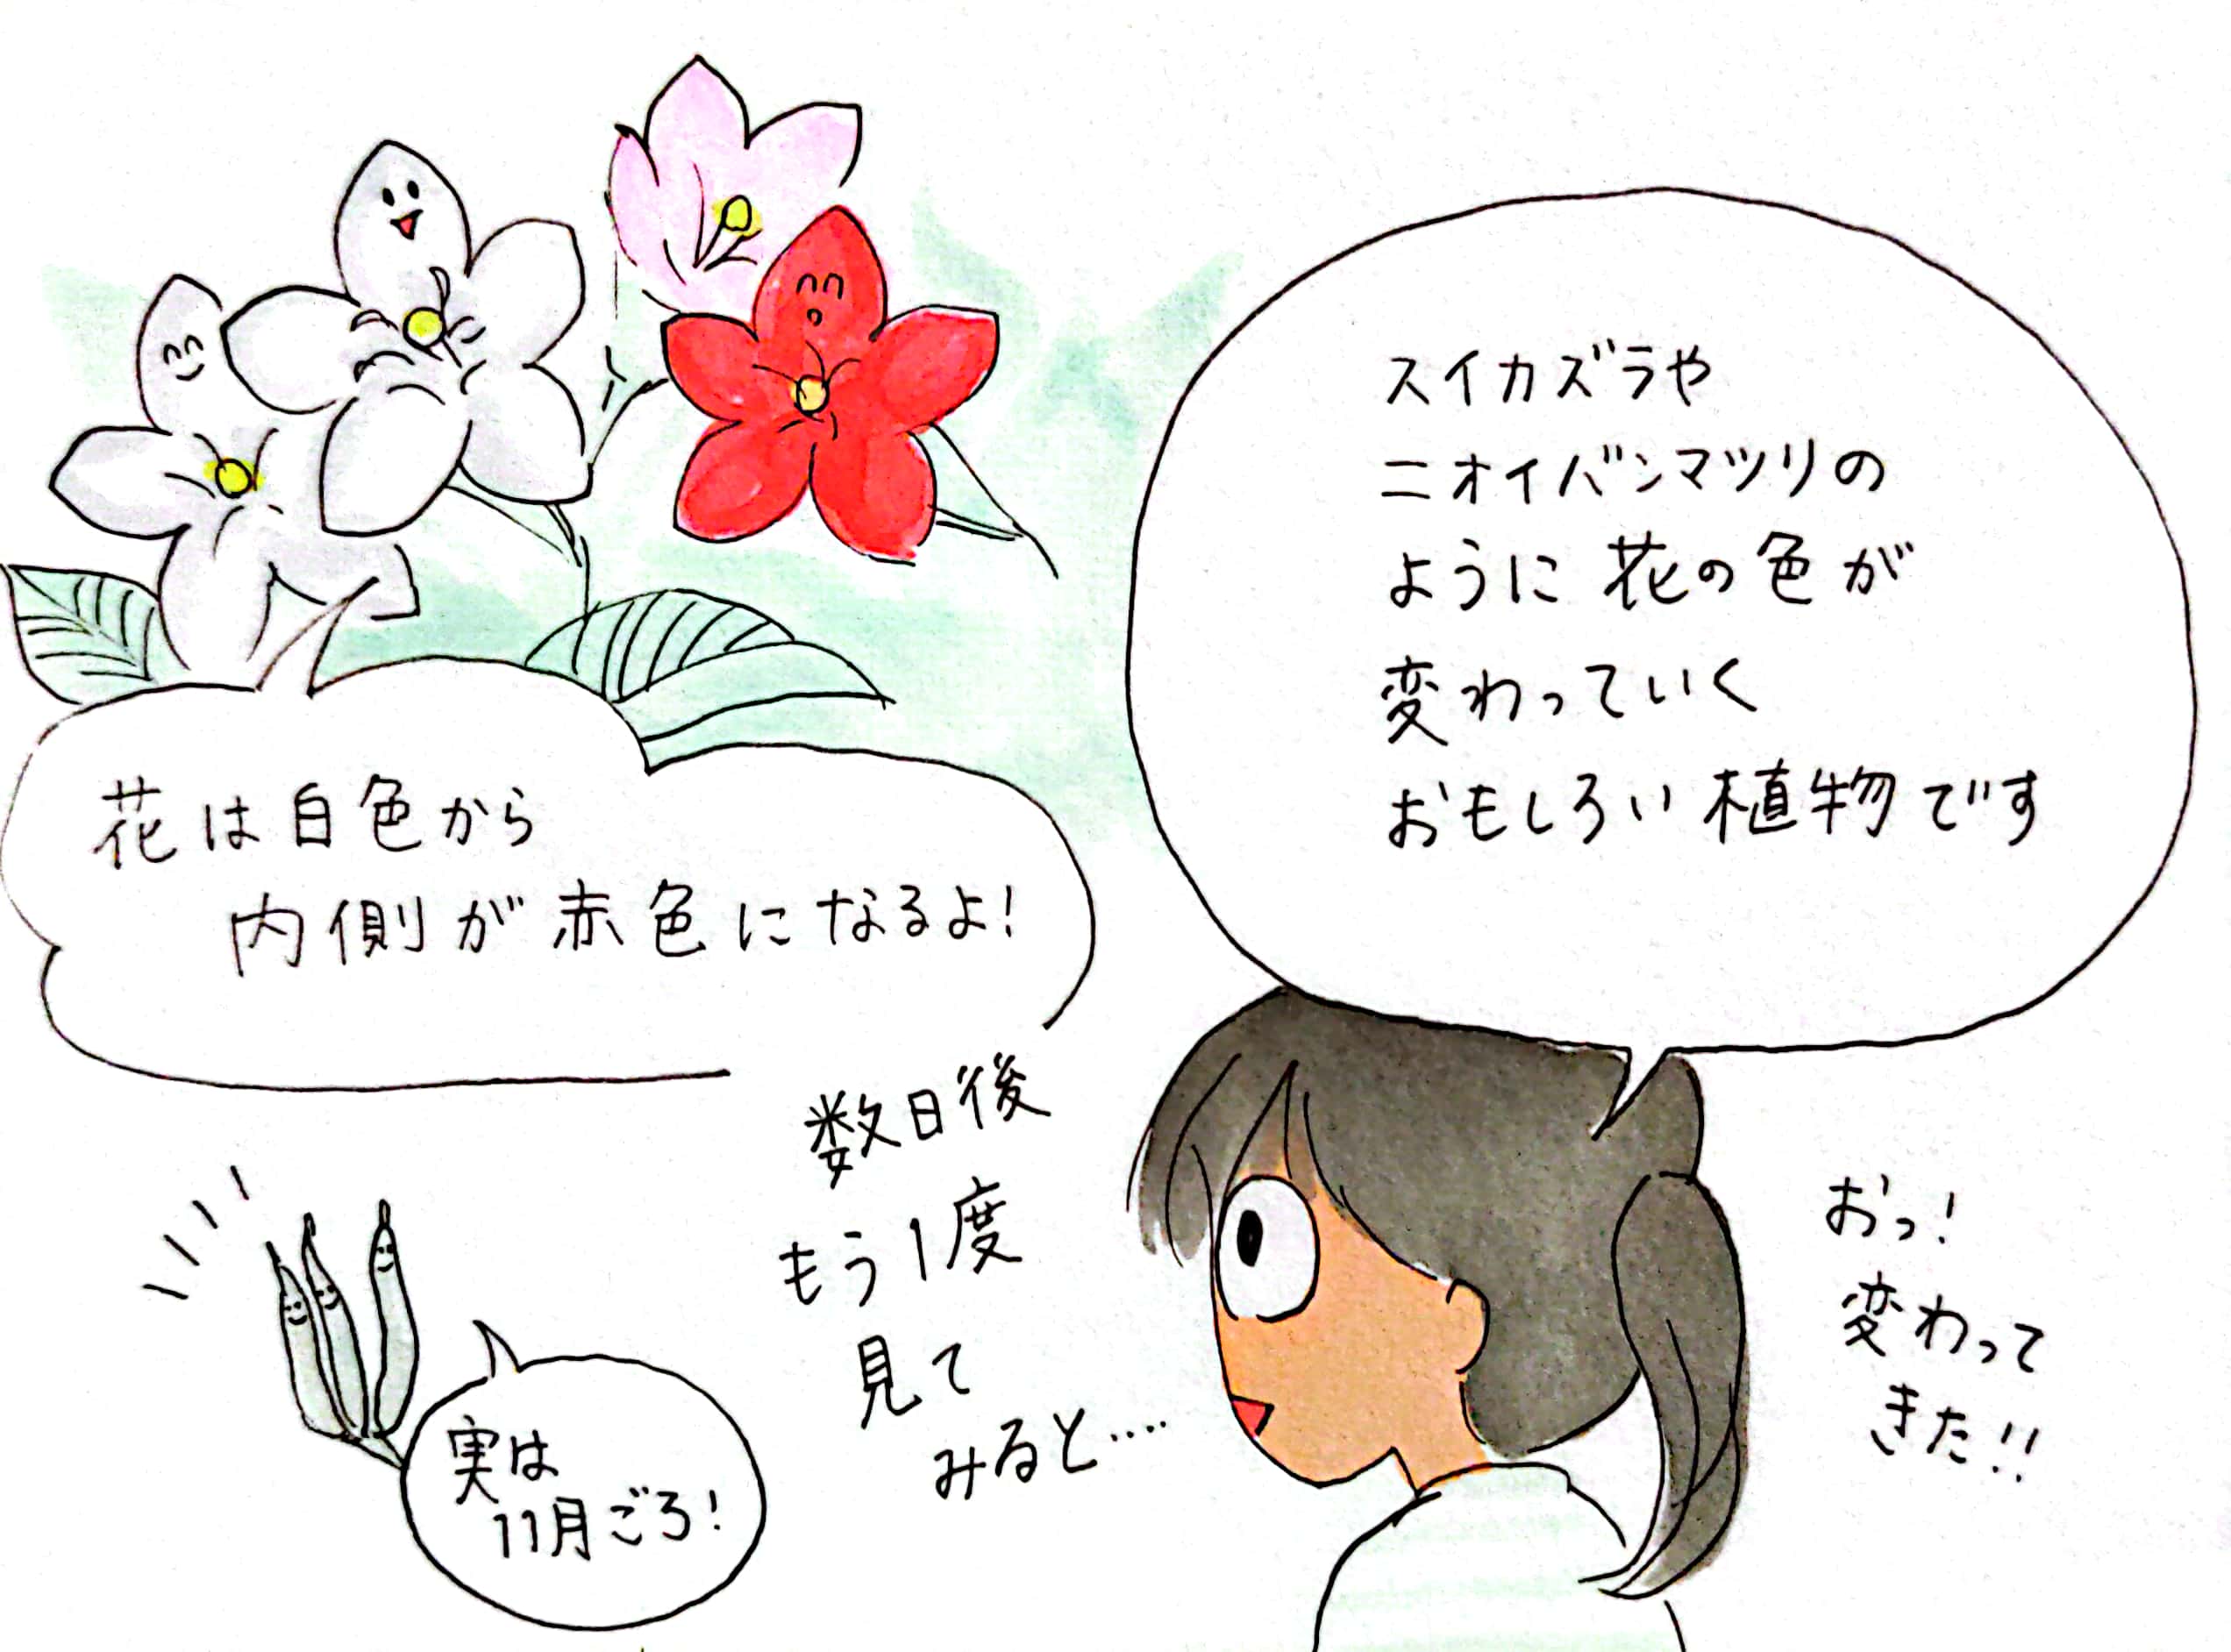 スイカズラや
ニオイバンマツリの
ように花の色が
変わっていく
おもしろい植物です
花は白色から
内側が赤色になるよ!
数日後
もう1度
見て
みると‥‥
おっ!
変わって
きた!!
実は
11月ごろ!